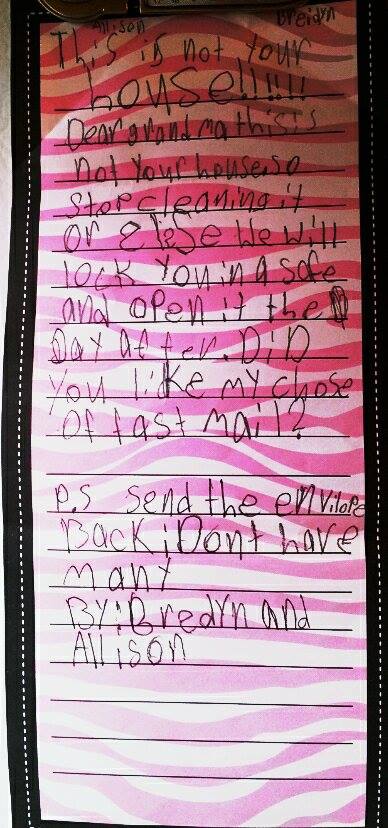 Allison Breidyn
This is not your
house!!!!!!
Dear grandma this is
not your house so
stop cleaning it
or elese We will
lock You in a safe
and open it the
Day after. DiD
You like my chose
of fast mail?
p.s send the envilope
Back i Dont have
many
By: Bredyn and
Allison